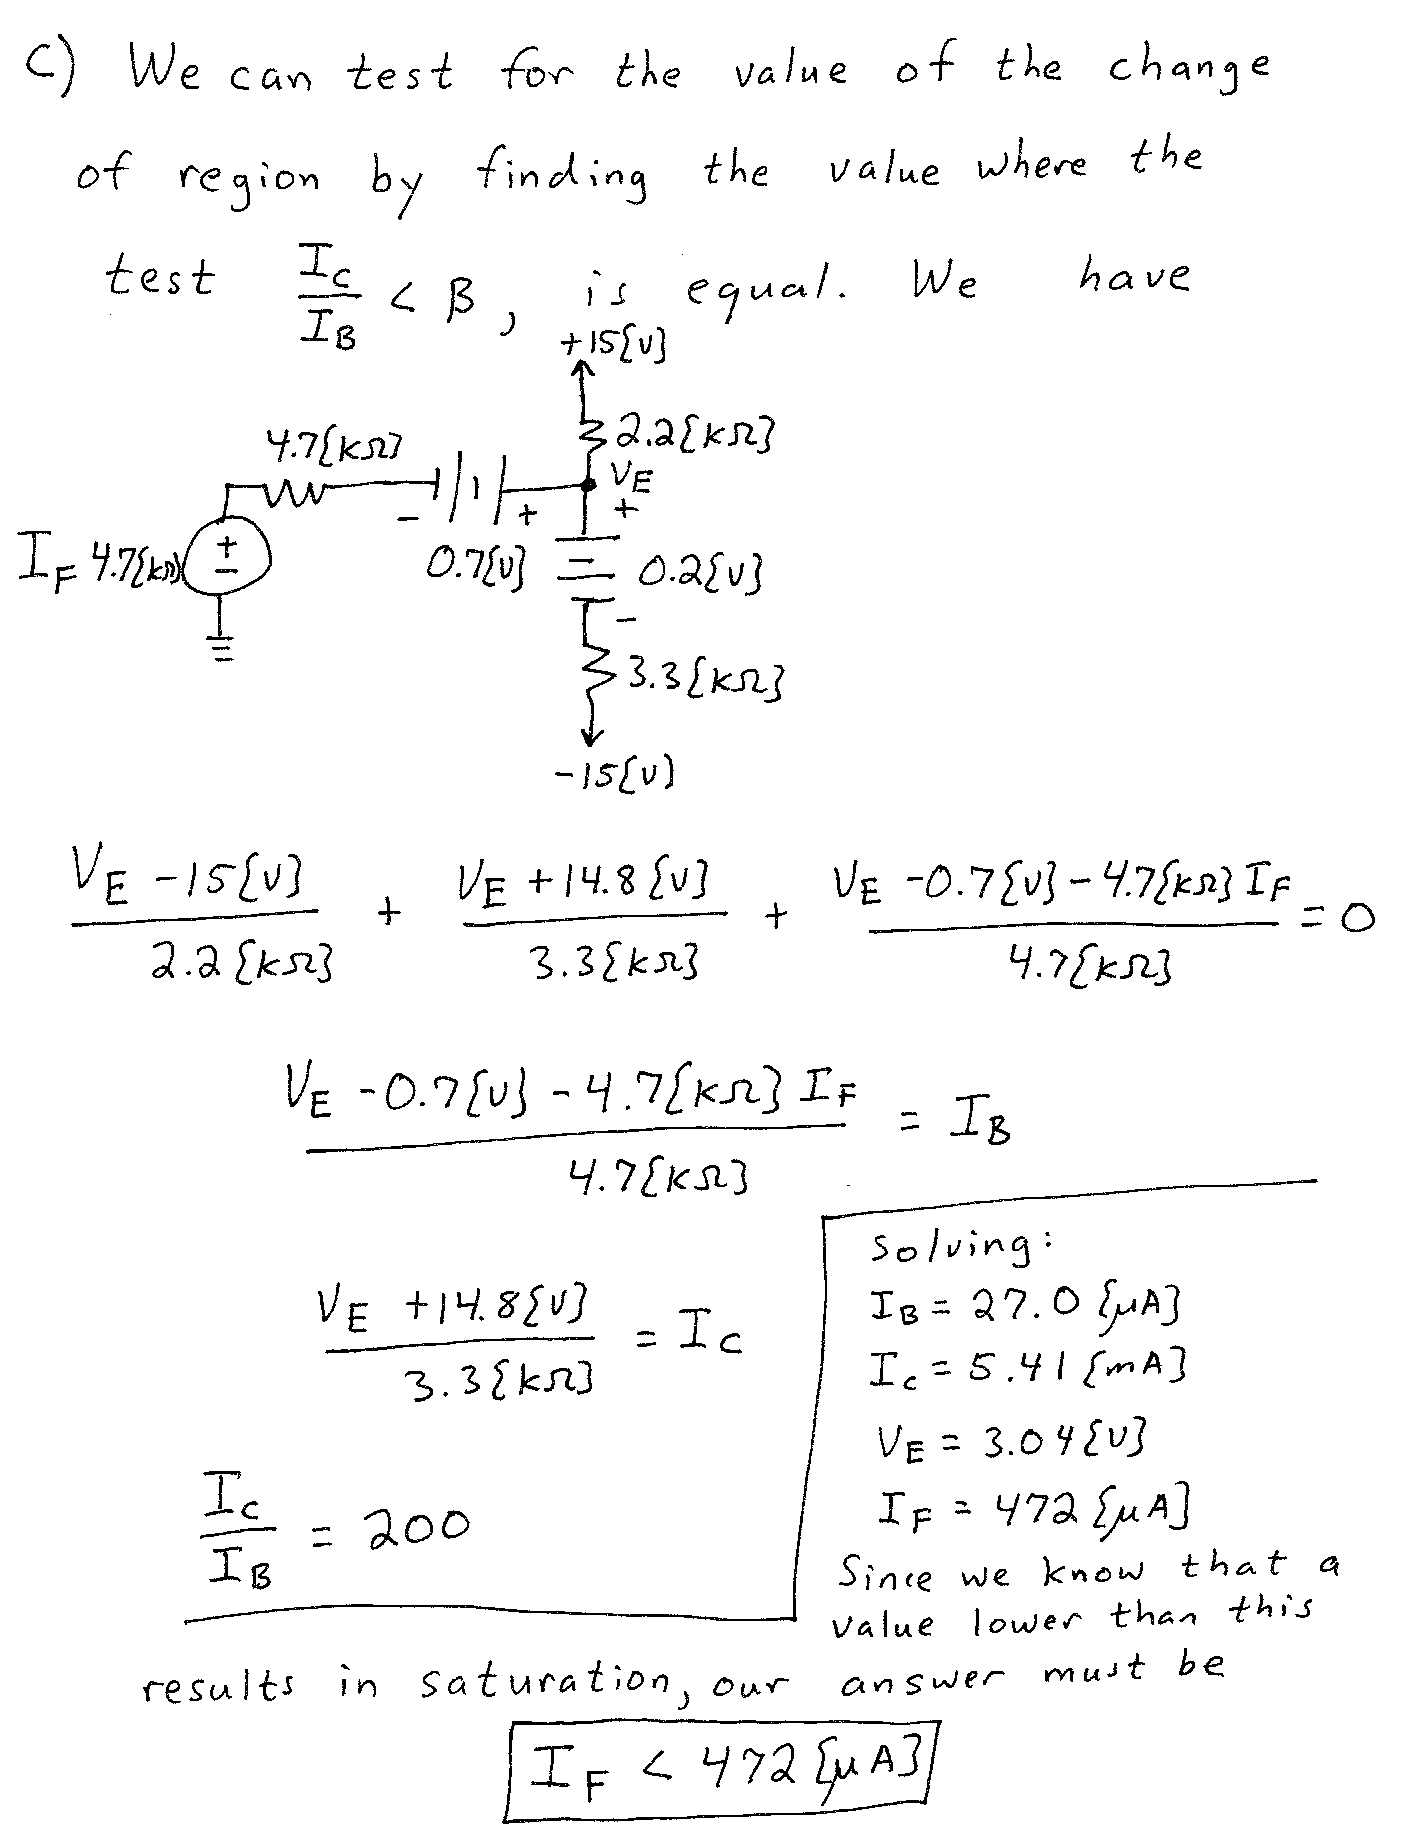 c) We can test for the value of the change
of region by finding the value where the
test I_C / I_B < β, is equal. We have
+15{V}
2.2{kΩ}
4.7{kΩ}
V_E
- + +
I_F 4.7{kΩ} + - 0.7{V} 0.2{V}
-
3.3{kΩ}
-15{V}
(V_E - 15{V}) / 2.2{kΩ} + (V_E + 14.8{V}) / 3.3{kΩ} + (V_E - 0.7{V} - 4.7{kΩ} I_F) / 4.7{kΩ} = 0
(V_E - 0.7{V} - 4.7{kΩ} I_F) / 4.7{kΩ} = I_B
(V_E + 14.8{V}) / 3.3{kΩ} = I_C
I_C / I_B = 200
Solving:
I_B = 27.0 {μA}
I_C = 5.41 {mA}
V_E = 3.04{V}
I_F = 472 {μA}
Since we know that a
value lower than this
results in saturation, our answer must be
I_F < 472 {μA}